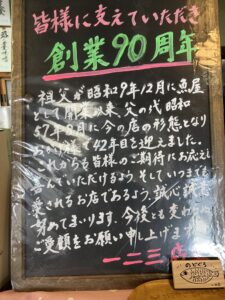 皆様に支えていただき
創業90周年
祖父が昭和9年12月に魚屋
として開業以来、父の代昭和
57年9月に今の店の形態となり
おかげ様で42年目を迎えました。
これからも皆様のご期待にお応え
していただけるよう、そしていつまでも
愛されるお店であるよう、誠心誠意
努めてまいります。今後とも変わらぬ
ご愛顧をお願い申し上げます
一二三
のどぐろ